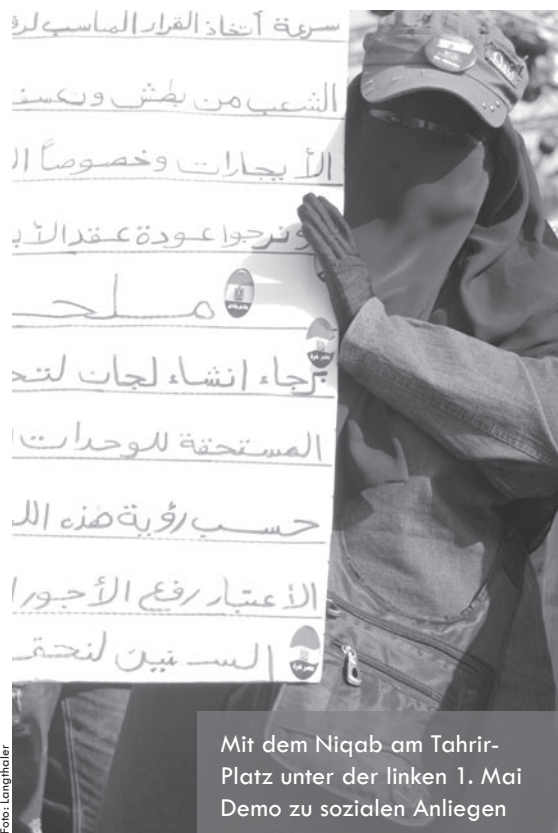 سرعة أتخاذ القرار المناسب
الشعب من بطش
الأيجارات وخصوصاً
ونرجوا عودة عقد
برجاء انشاء لجان
المستحقة للوحدات
حسب رؤية هذه
الأعتبار رفع الأجور
السنين
Foto: Langthaler
Mit dem Niqab am Tahrir-
Platz unter der linken 1. Mai
Demo zu sozialen Anliegen